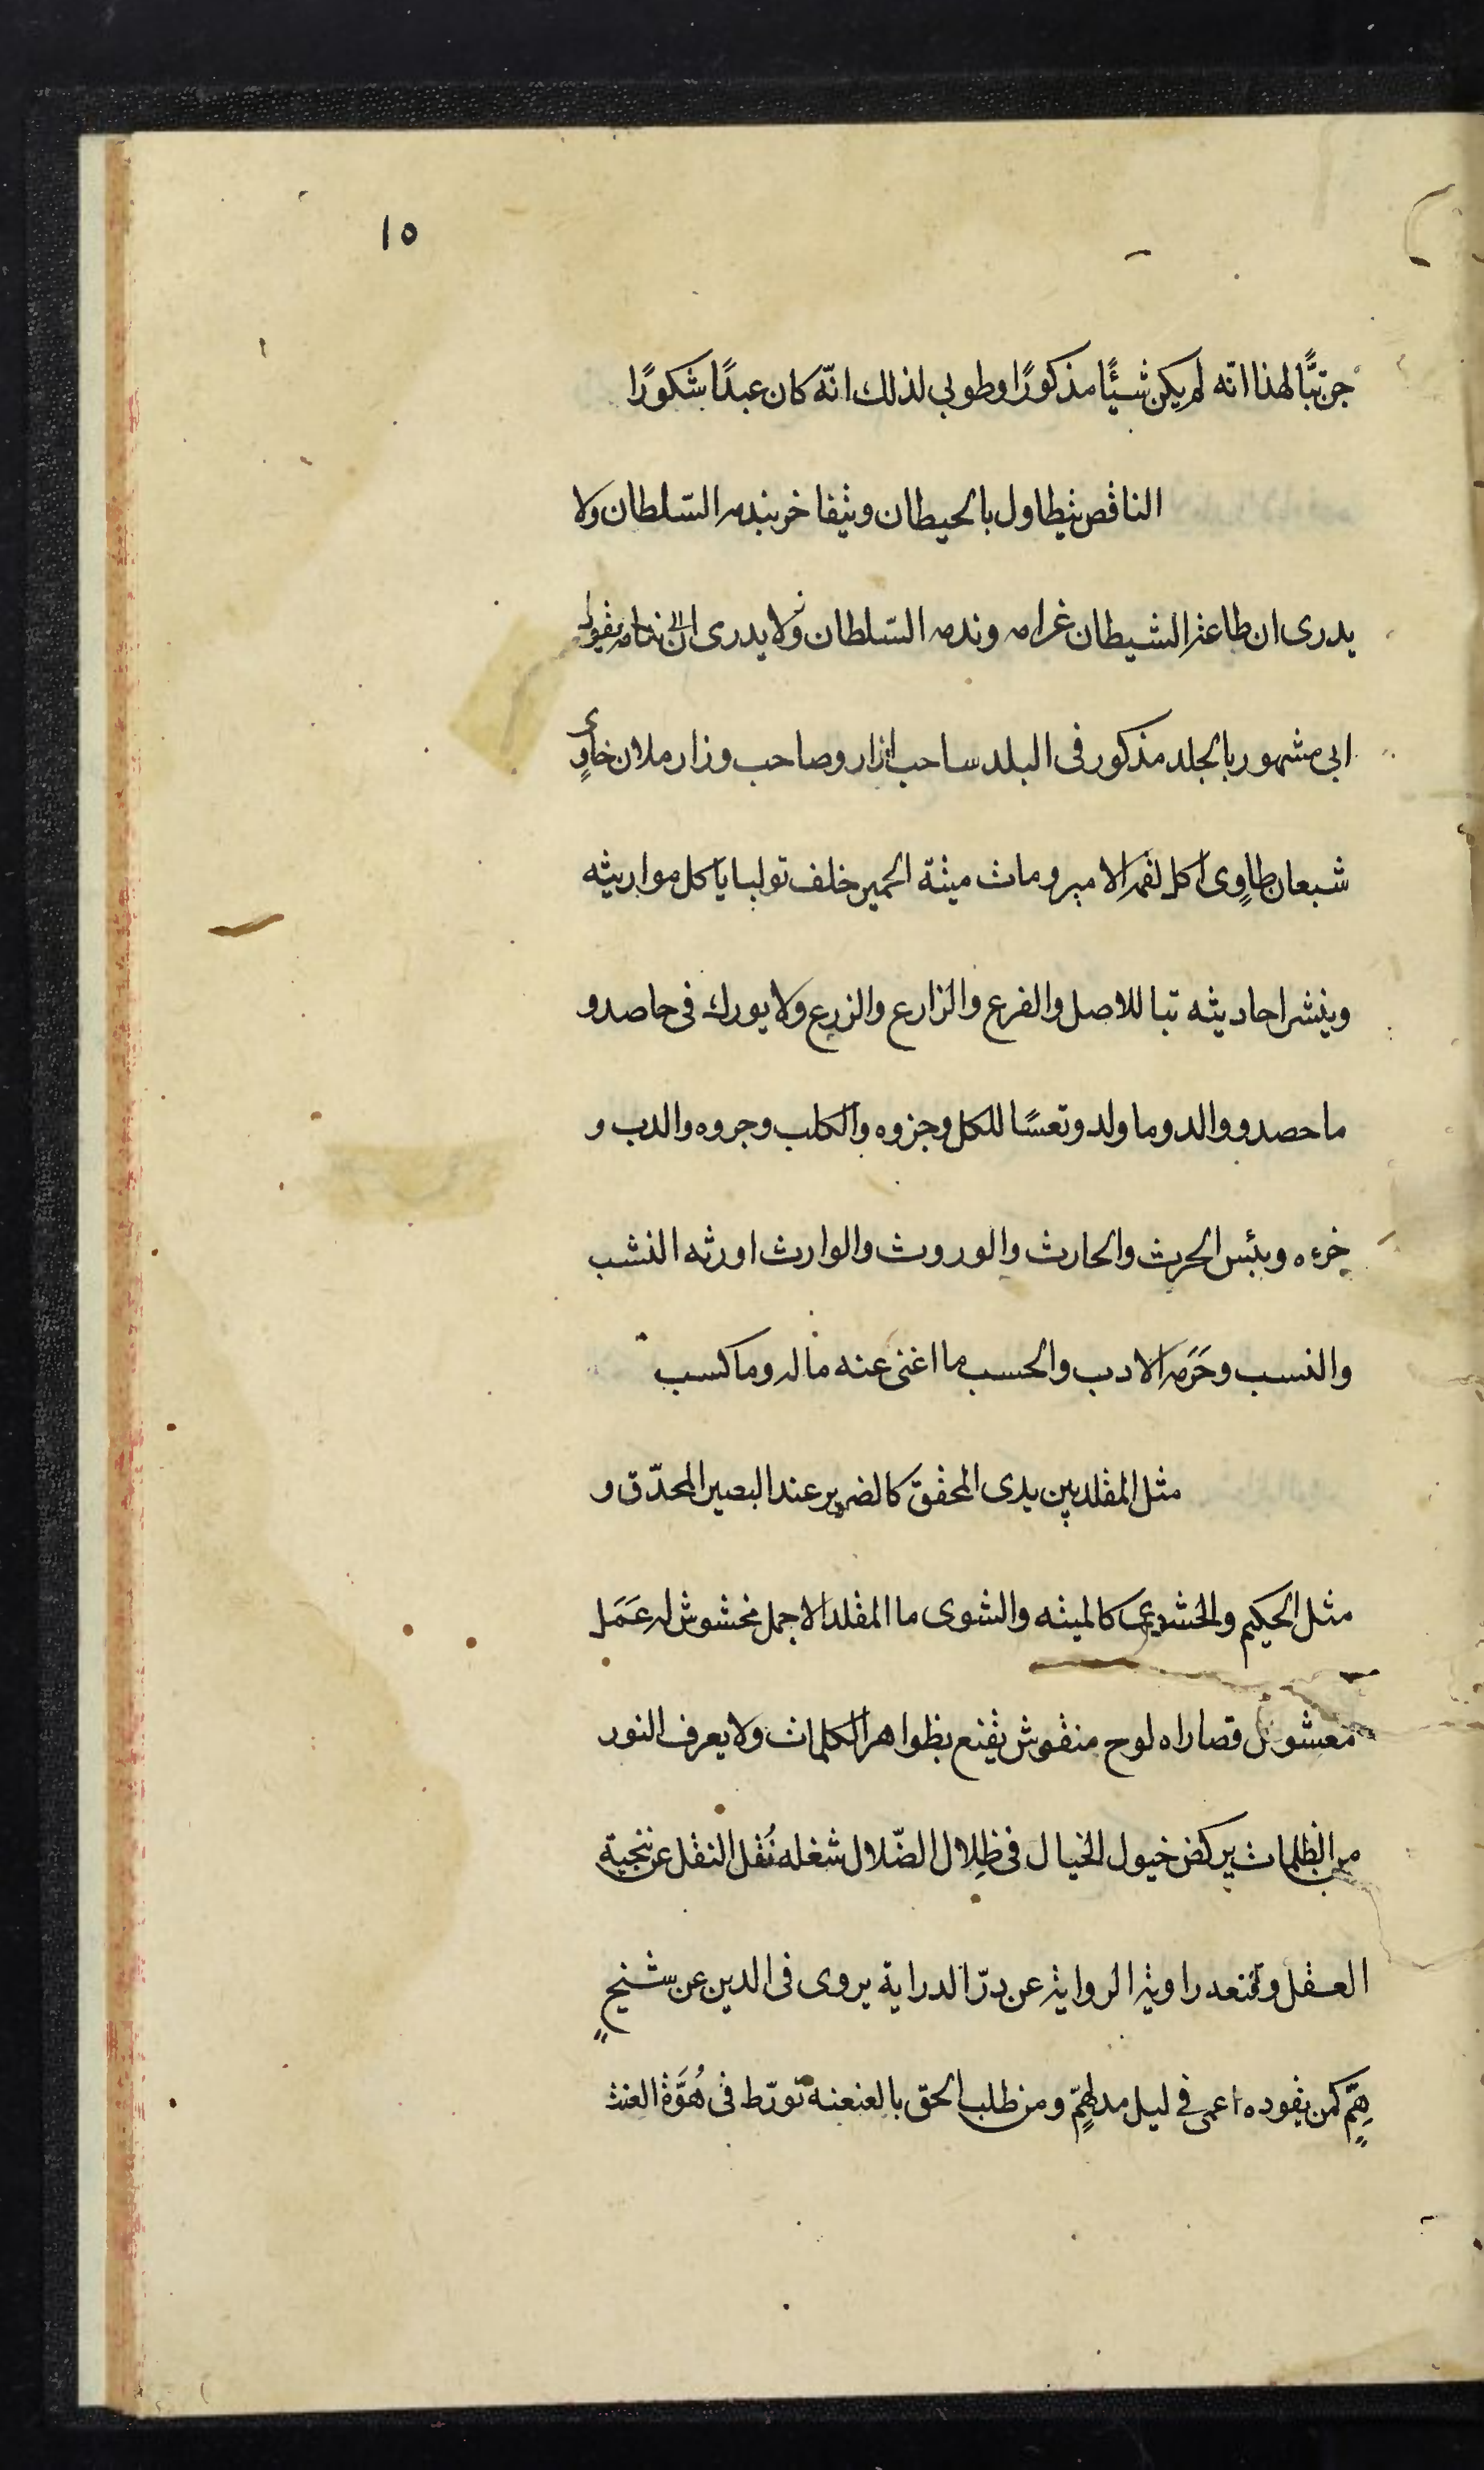 ١٥
جن تبًّا لهذا انّه لم يكن شيئًا مذكورًا وطوبى لذلك انّه كان عبدًا شكورًا
الناقص يتطاول بالحيطان ويتفاخر بندم السّلطان ولا
يدرى ان طاعة الشيطان غرام وندم السّلطان ولا يدرى ندام يقول
ابى مشهور بالجلد مذكور فى البلد ساحب ازار وصاحب وزار ملان خاوٍى
شبعان طاوٍى اكل لقم الامير ومات ميتة الحمير خلف تولبا ياكل مواريثه
وينشر احاديثه تبا للاصل والفرع والزارع والزرع ولا بورك فى حاصد و
ما حصد ووالد وما ولد وتعسًا للكل وجزوه والكلب وجروه والدب و
خرءه وبئس الحرث والحارث والوروث والوارث اورثه النشب
والنسب وحَرَمه الادب والحسب ما اغنى عنه ماله وما كسب
مثل المقلد بين يدى المحقق كالضرير عند البصير المحدّق و
مثل الحكيم والحشوى كالميته والشوى ما المقلد الا جمل مخشوش له عَمَل
مغشوش قصاراه لوح منقوش يقنع بظواهر الكلمات ولا يعرف النور
من الظلمات يركض خيول الخيال فى ظِلال الضّلال شغله نُقل النقل عن نخبة
العقل وقنعه راوية الرواية عن درّ الدراية يروى فى الدين عن شيخٍ
هِمٍّ كمن يقوده اعمى فى ليل مدلهمٍّ ومن طلب الحق بالعنعنه تورّط فى هُوَّة العنت